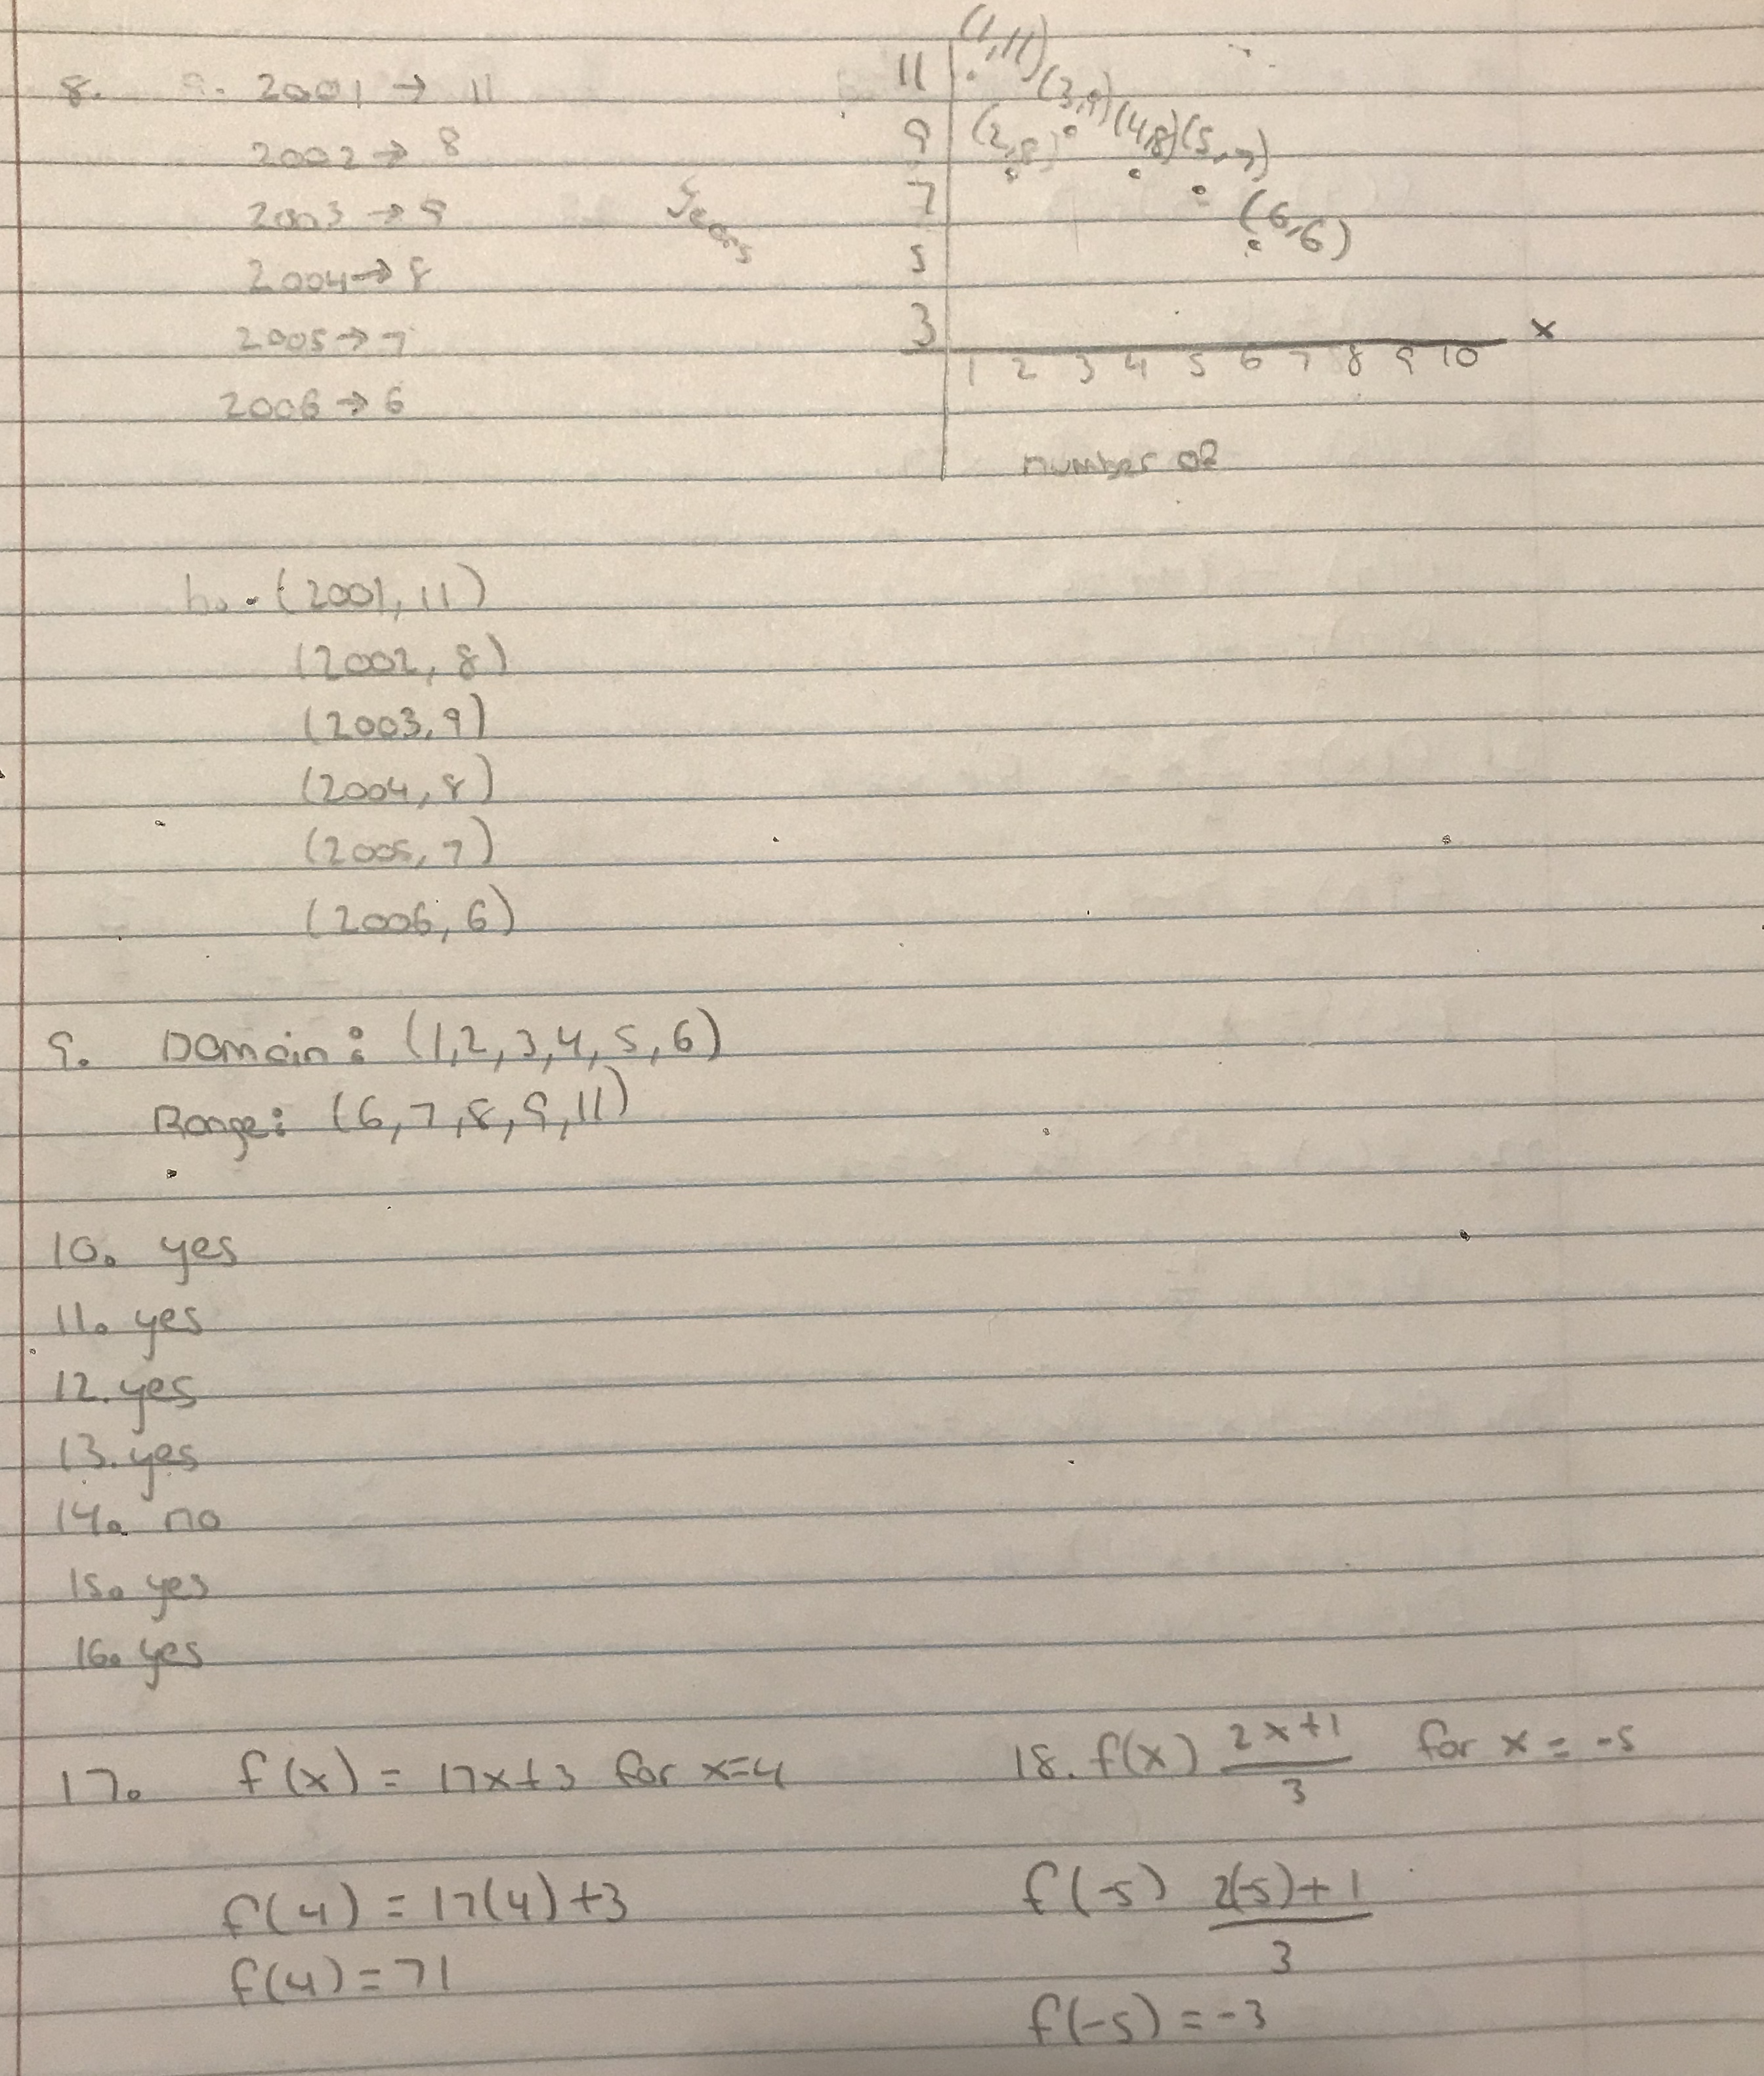 8. a. 2001 → 11
2002 → 8
2003 → 9
2004 → 8
2005 → 7
2006 → 6
11
9
7
5
3
(1,11)
(3,9)
(2,8)
(4,8)
(5,7)
(6,6)
x
1 2 3 4 5 6 7 8 9 10
number of
b. (2001, 11)
(2002, 8)
(2003, 9)
(2004, 8)
(2005, 7)
(2006, 6)
9. Domain: (1,2,3,4,5,6)
Range: (6,7,8,9,11)
10. yes
11. yes
12. yes
13. yes
14. no
15. yes
16. yes
17. f(x) = 17x+3 for x=4
f(4) = 17(4)+3
f(4)=71
18. f(x) 2x+1 / 3 for x = -5
f(-5) 2(-5)+1 / 3
f(-5) = -3